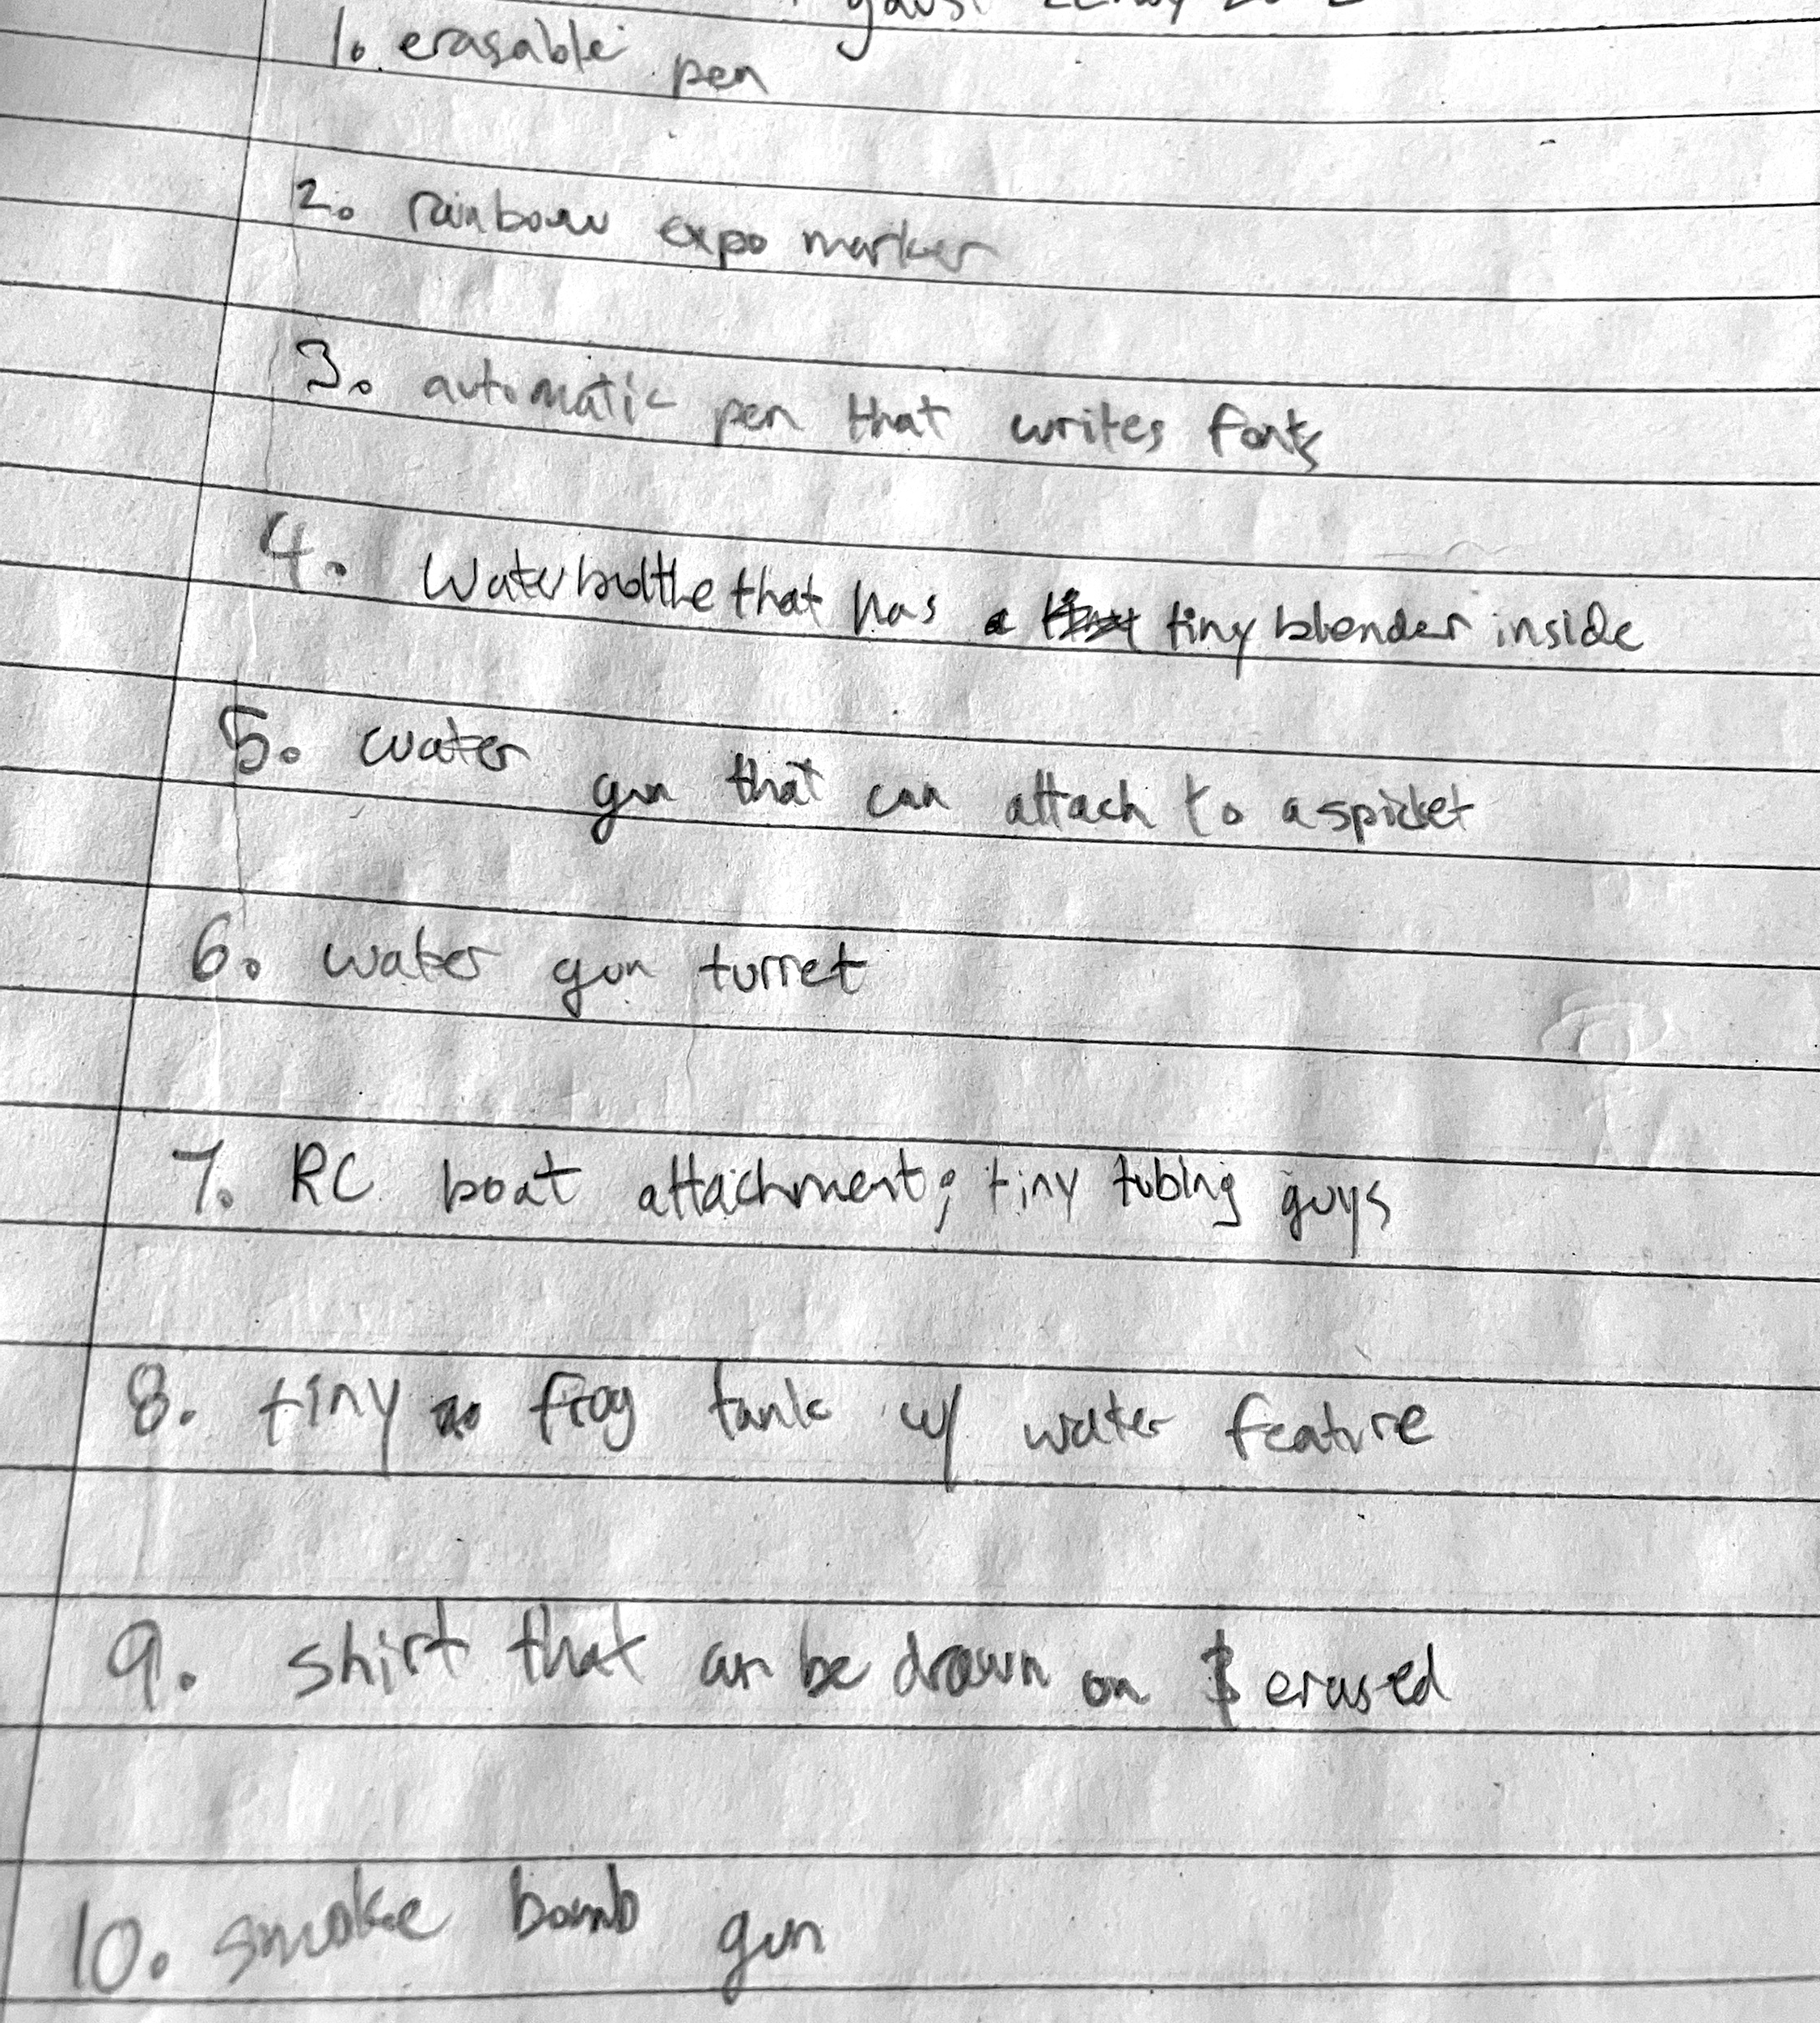 1. erasable pen
2. rainbow expo marker
3. automatic pen that writes fonts
4. Waterbottle that has a tiny blender inside
5. water gun that can attach to a spicket
6. water gun turret
7. RC boat attachment; tiny tubing guys
8. tiny frog tank w/ water feature
9. shirt that can be drawn on & erased
10. smoke bomb gun